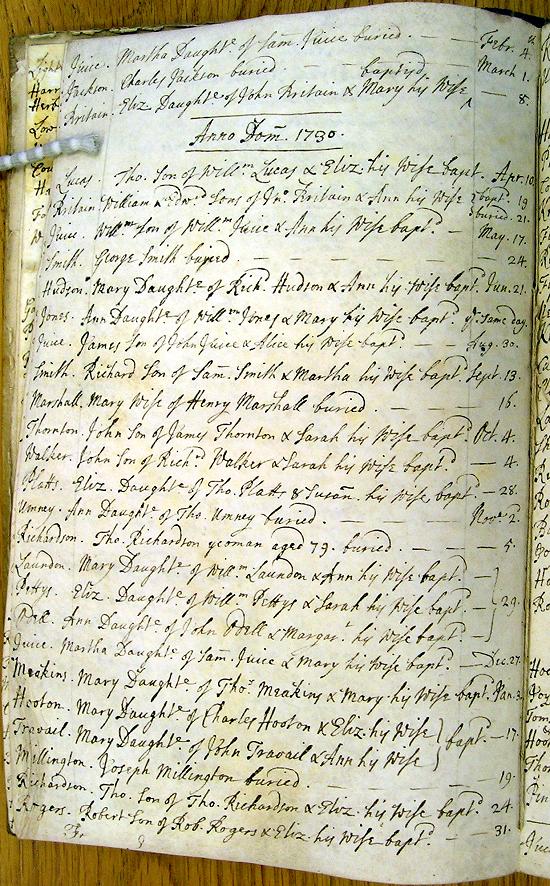 Juice. Martha Daughtr. of Sam. Juice buried. — — Febr. 4.
Jackson. Charles Jackson buried — baptizd. March 1.
Britain. Eliz. Daughtr. of John Britain & Mary his Wife ^ — 8.
Anno Dom. 1730.
Lucas. Tho. Son of Willm. Lucas & Eliz. his Wife bapt. Apr. 10
Britain. William & Edwd. Sons of Jno. Britain & Ann his Wife bapt. 19
buried. 21.
Juice. Willm. Son of Willm. Juice & Ann his Wife bapt. — May. 17.
Smith. George Smith buried — — — — — 24.
Hudson. Mary Daughtr. of Rich. Hudson & Ann his Wife bapt. Jun. 21.
Jones. Ann Daughtr. of Willm. Jones & Mary his Wife bapt. ye. same day.
Juice. James Son of John Juice & Alice his Wife bapt. — Aug. 30.
Smith. Richard Son of Sam. Smith & Martha his Wife bapt. Sept. 13.
Marshall. Mary Wife of Henry Marshall buried. — — — 15.
Thornton. John Son of James Thornton & Sarah his Wife bapt. Oct. 4.
Walker. John Son of Richd. Walker & Sarah his Wife bapt. — 4.
Platts. Eliz. Daughtr. of Tho. Platts & Susan. his Wife, bapt. — 28.
Umney. Ann Daughtr. of Tho. Umney buried. — — — Novr. 2.
Richardson. Tho. Richardson yeoman aged 79. buried. — — — 5.
Laundon. Mary Daughtr. of Willm. Laundon & Ann his Wife bapt. —
Pettys. Eliz. Daughtr. of Willm. Pettys & Sarah his Wife bapt. — 29.
Odell. Ann Daughtr. of John Odell & Margar. his Wife bapt. —
Juice. Martha Daughtr. of Sam. Juice & Mary his Wife bapt. — Dec. 27.
Meakins. Mary Daughtr. of Tho. Meakins & Mary his Wife bapt. Jan. 3.
Hooton. Mary Daughtr. of Charles Hooton & Eliz. his Wife
bapt. — 17.
Travail. Mary Daughtr. of John Travail & Ann his Wife
Millington. Joseph Millington buried. — — — — 19.
Richardson. Tho. Son of Tho. Richardson & Eliz. his Wife bapt. 24.
Rogers. Robert Son of Rob. Rogers & Eliz. his Wife bapt. — 31.